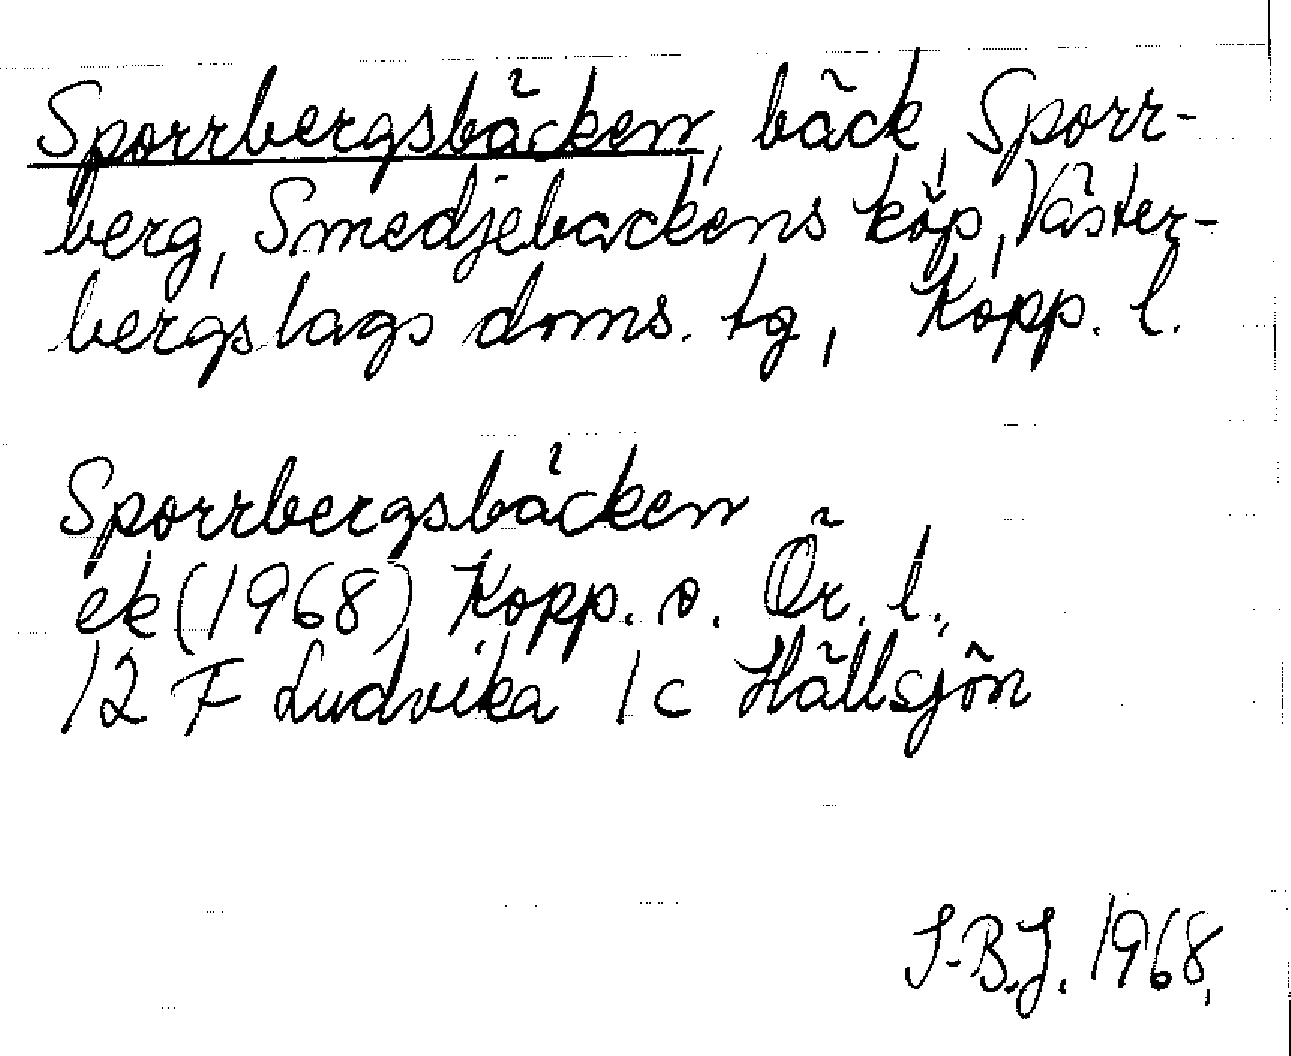 Sporrbergsbäcken, bäck, Sporr-
berg, Smedjebackens köp, Väster-
bergslags doms. tg, Kopp. l.
Sporrbergsbäcken
ek (1968) Kopp. o. Ör. l.
12 F Ludvika 1 c Hällsjön
I-B.J. 1968.